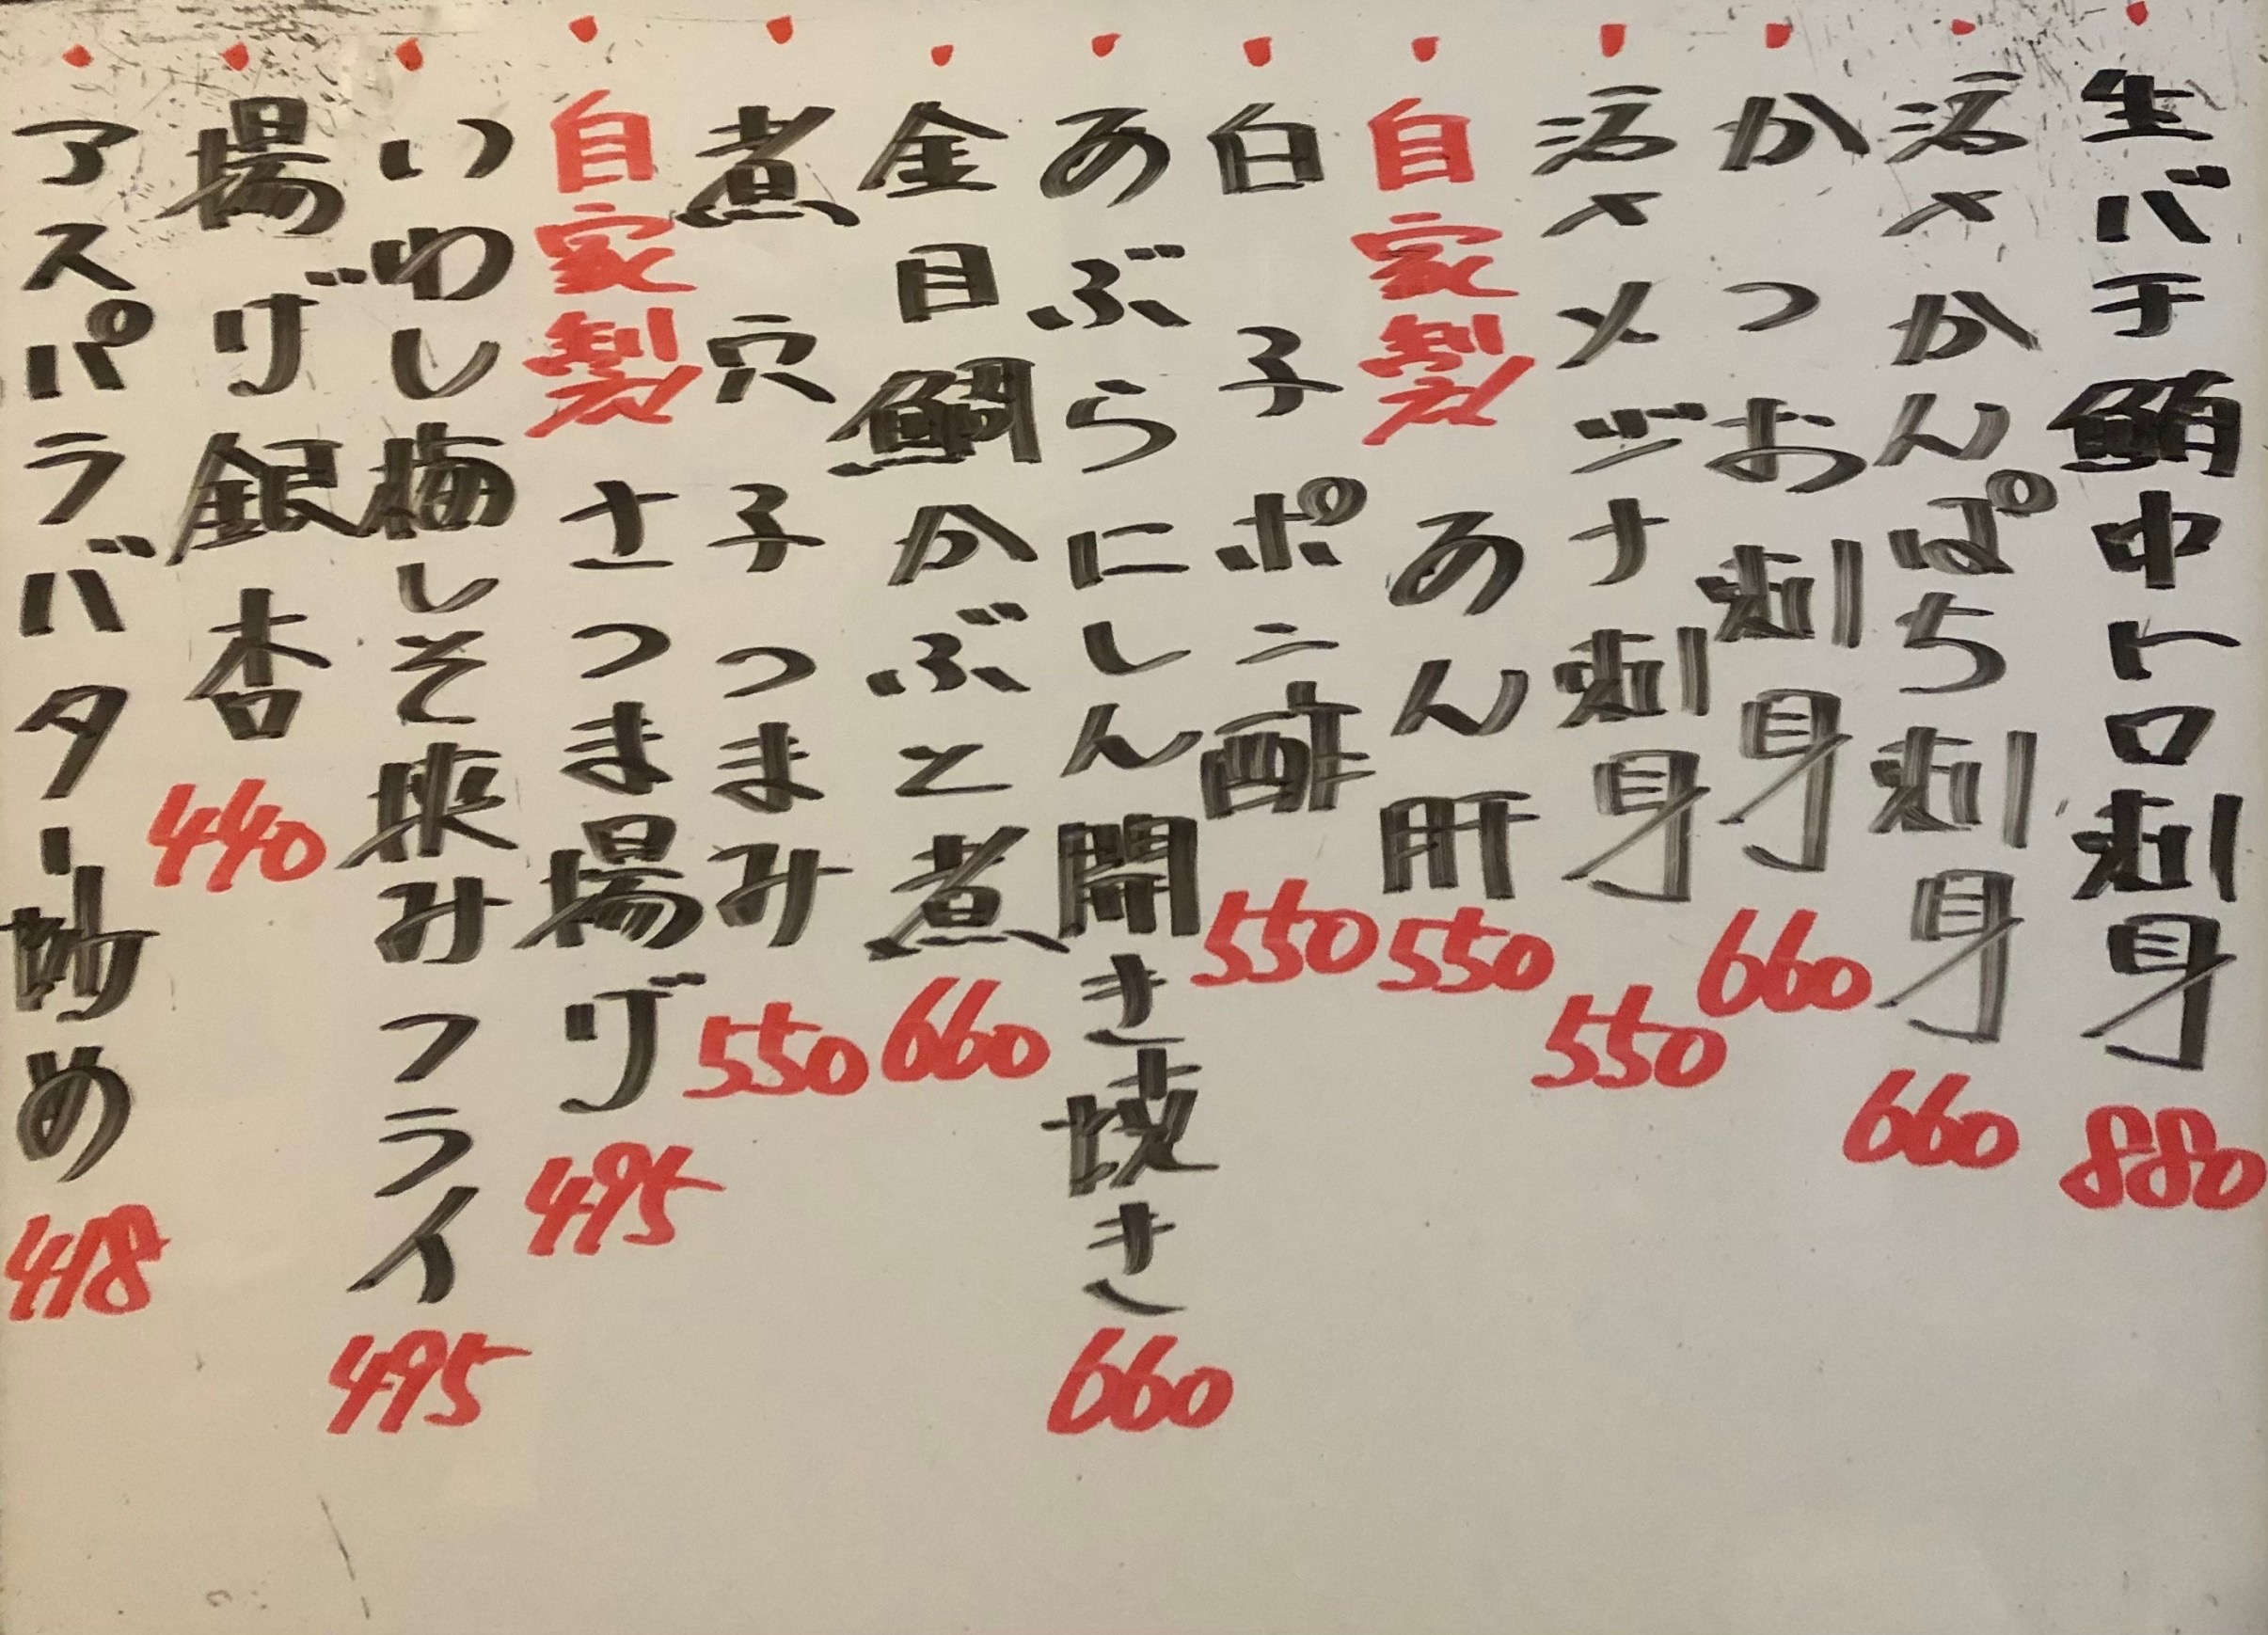 ・生バチ鮪中トロ刺身 880
・活〆かんぱち刺身 660
・かつお刺身 660
・活〆メヅナ刺身 550
・自家製あん肝 550
・白子ポン酢 550
・あぶらにしん開き焼き 660
・金目鯛かぶと煮 660
・煮穴子つまみ 550
・自家製さつま揚げ 495
・いわし梅しそ挟みフライ 495
・揚げ銀杏 440
・アスパラバター炒め 418